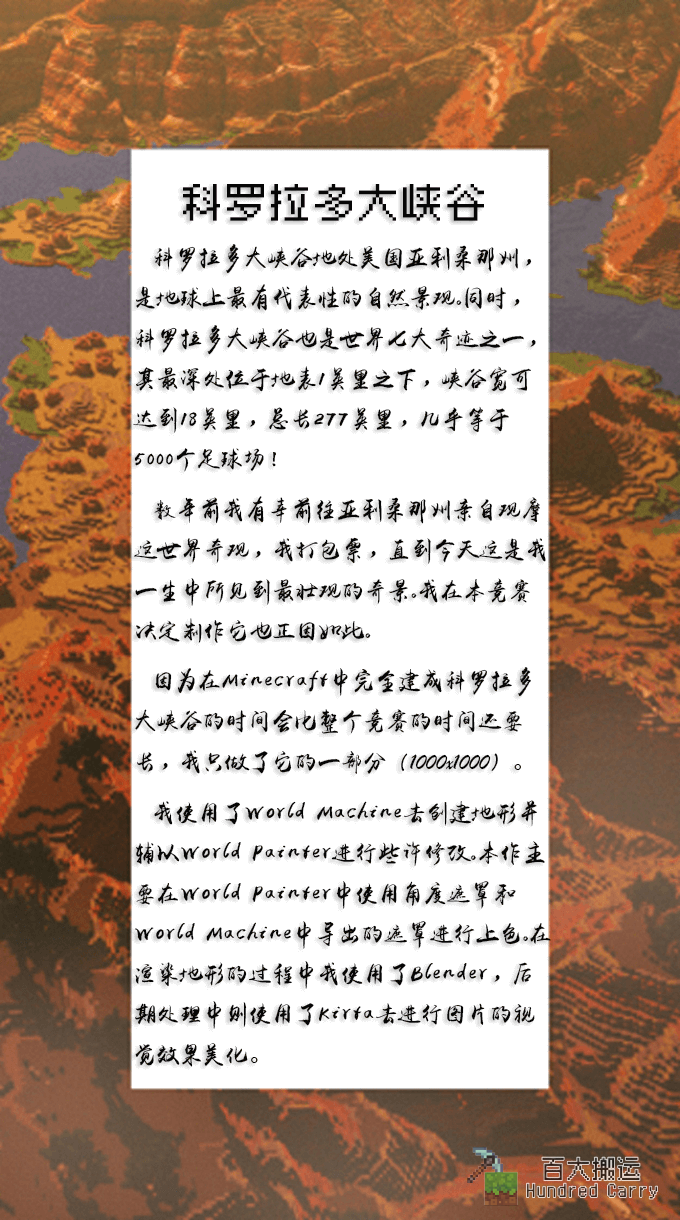 科罗拉多大峡谷
科罗拉多大峡谷地处美国亚利桑那州，
是地球上最有代表性的自然景观。同时，
科罗拉多大峡谷也是世界七大奇迹之一，
其最深处位于地表1英里之下，峡谷宽可
达到18英里，总长277英里，几乎等于
5000个足球场！
数年前我有幸前往亚利桑那州亲自观摩
这世界奇观，我打包票，直到今天这是我
一生中所见到最壮观的奇景。我在本竞赛
决定制作它也正因如此。
因为在Minecraft中完全建成科罗拉多
大峡谷的时间会比整个竞赛的时间还要
长，我只做了它的一部分（1000x1000）。
我使用了World Machine去创建地形并
辅以World Painter进行些许修改。本作主
要在World Painter中使用角度遮罩和
World Machine中导出的遮罩进行上色。在
渲染地形的过程中我使用了Blender，后
期处理中则使用了Kirta去进行图片的视
觉效果美化。
百大搬运
Hundred Carry